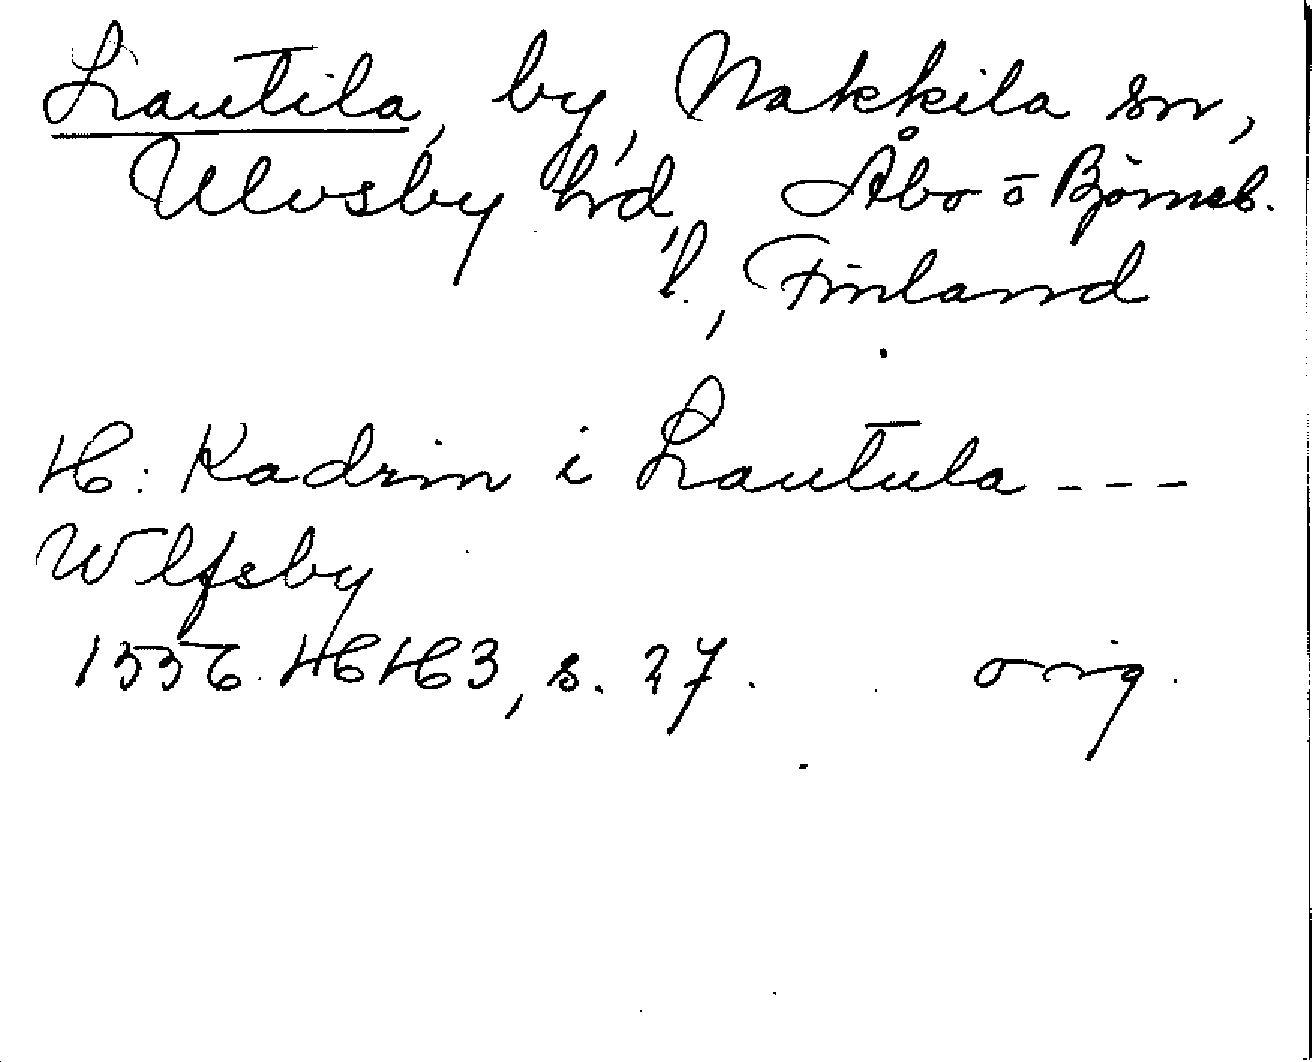 Lautila, by, Nakkila sn,
Ulvsby hd, Åbo o Björneb.
l., Finland
H: Kadrin i Lautula ---
Wlfsby
1556. HH3, s. 27. orig.